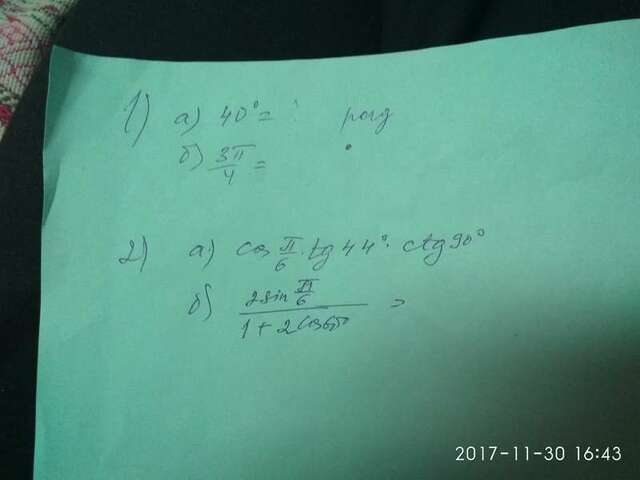 1) а) 40° = ? рад
б) 3π/4 = °
2) а) cos π/6 · tg 44° · ctg 90°
б) 2 sin π/6 / 1 + 2 cos =
2017-11-30 16:43